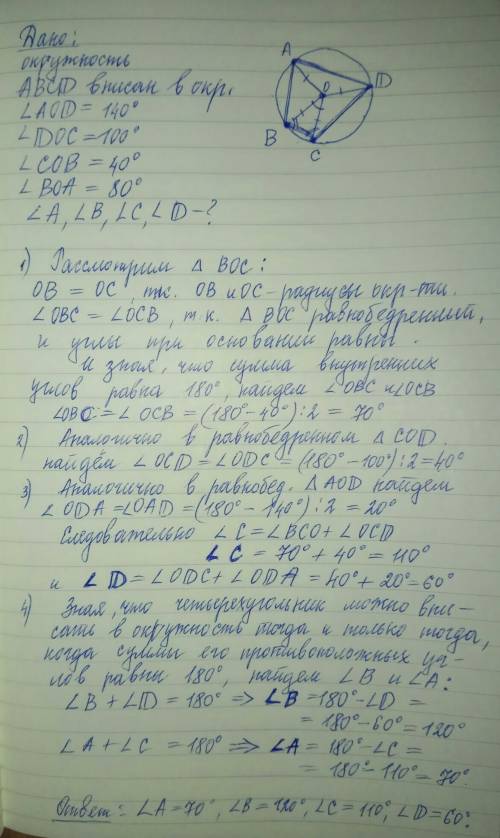 Дано:
окружность
ABCD вписан в окр.
∠AOD = 140°
∠DOC = 100°
∠COB = 40°
∠BOA = 80°
∠A, ∠B, ∠C, ∠D - ?
A
D
O
B
C
1) Рассмотрим △ BOC:
OB = OC, т.к. OB и OC - радиусы окр-ти.
∠OBC = ∠OCB, т.к. △ BOC равнобедренный,
и углы при основании равны.
И зная, что сумма внутренних
углов равна 180°, найдем ∠OBC и ∠OCB
∠OBC = ∠OCB = (180° - 40°) : 2 = 70°
2) Аналогично в равнобедренном △ COD
найдём ∠OCD = ∠ODC = (180° - 100°) : 2 = 40°
3) Аналогично в равнобед. △ AOD найдем
∠ODA = ∠OAD = (180° - 140°) : 2 = 20°
Следовательно ∠C = ∠BCO + ∠OCD
∠C = 70° + 40° = 110°
и ∠D = ∠ODC + ∠ODA = 40° + 20° = 60°
4) Зная, что четырехугольник можно впи-
сать в окружность тогда и только тогда,
когда суммы его противоположных уг-
лов равны 180°, найдем ∠B и ∠A:
∠B + ∠D = 180° => ∠B = 180° - ∠D =
= 180° - 60° = 120°
∠A + ∠C = 180° => ∠A = 180° - ∠C =
= 180° - 110° = 70°
Ответ: ∠A = 70°, ∠B = 120°, ∠C = 110°, ∠D = 60°.